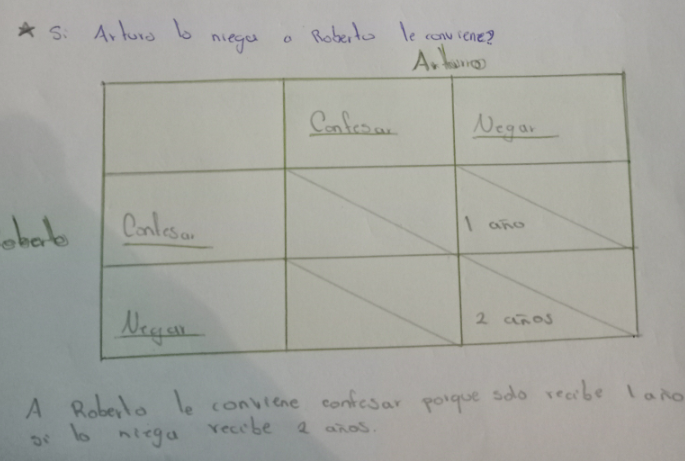 * Si Arturo lo niega a Roberto le conviene?
Arturo
Confesar Negar
Roberto Confesar 1 año
Negar 2 años
A Roberto le conviene confesar porque solo recibe 1 año
si lo niega recibe 2 años.